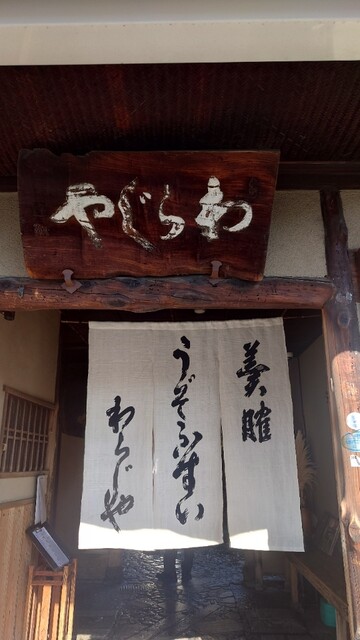 わらじや
羹
うぞふすい
わらじや